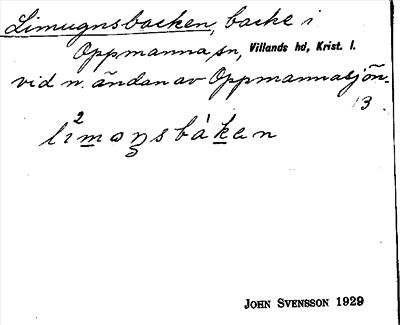 Limugnsbacken, backe i
Oppmanna sn, Villands hd, Krist. l.
vid n. ändan av Oppmannasjön.
13.
li²moŋsbákan
JOHN SVENSSON 1929